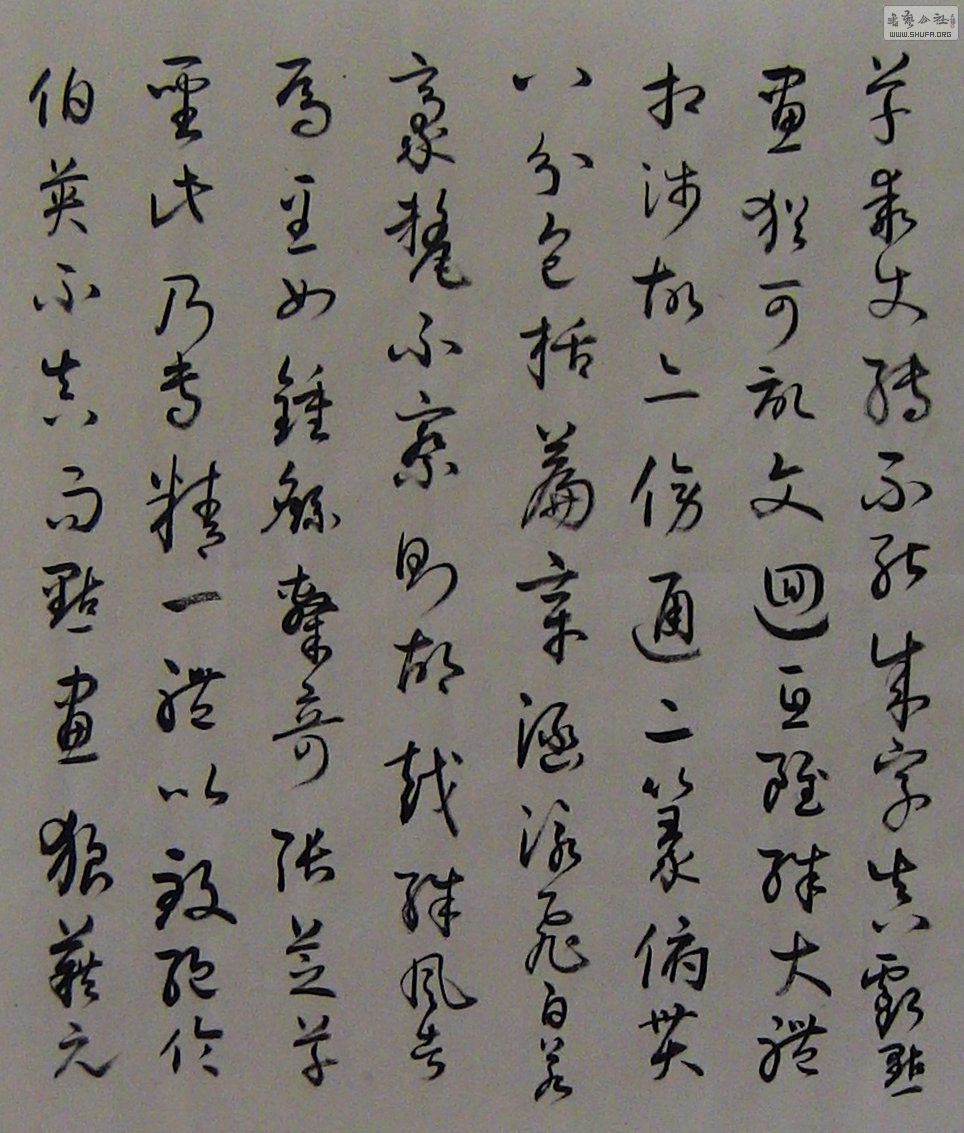 草乖使轉不能成字真虧點
畫猶可記文迴互雖殊大體
相涉故亦傍通二篆俯貫
八分包括篇章涵泳飛白若
豪氂不察則胡越殊風者
焉至如鍾繇隸奇張芝草
聖此乃專精一體以致絕倫
伯英不真而點畫狼藉元
書藝公社
WWW.SHUFA.ORG